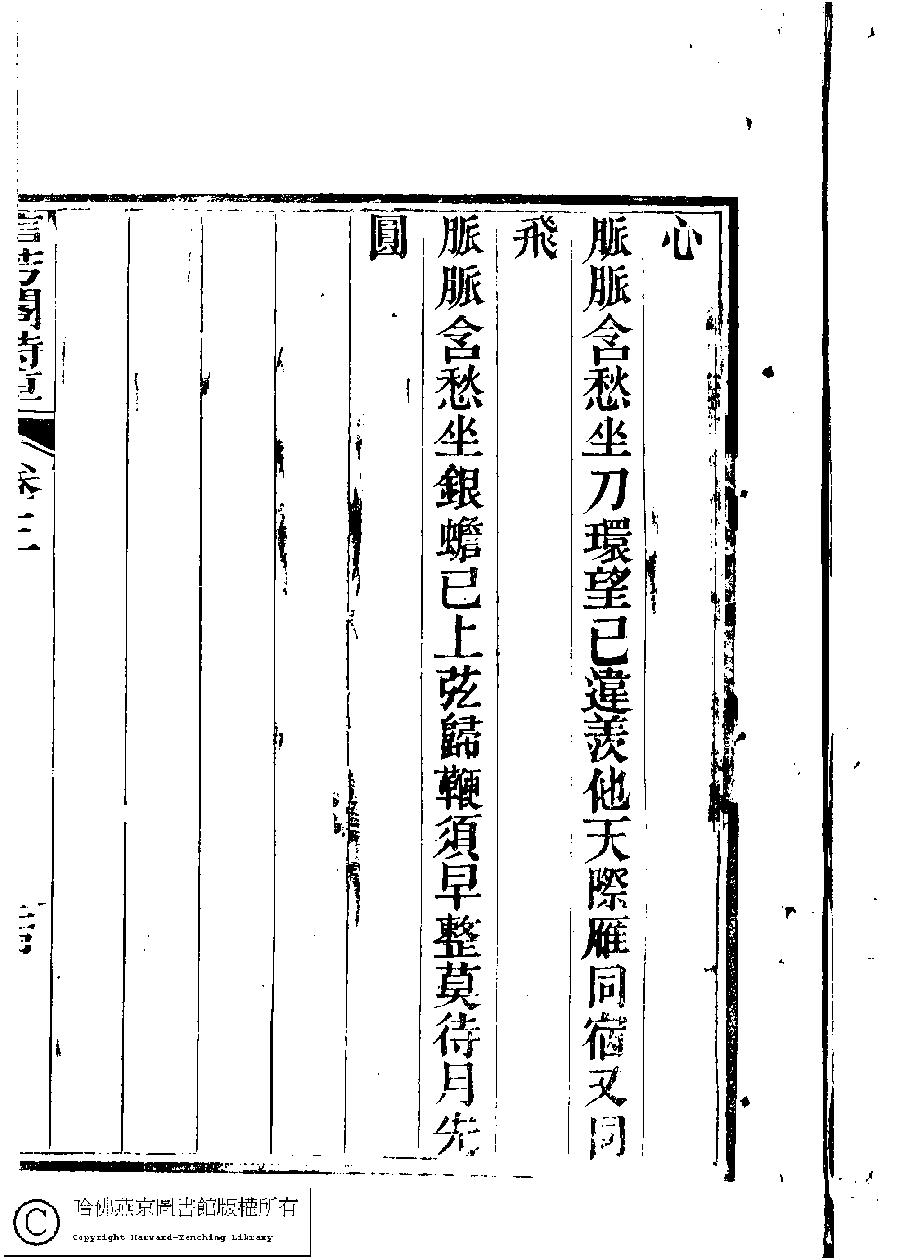 心
脈脈含愁坐刀環望已違羨他天際雁同宿又同
飛
脈脈含愁坐銀蟾已上弦歸鞭須早整莫待月先
圓
信芳閣詩草
卷三
哈佛燕京圖書館版權所有
Copyright Harvard-Yenching Library